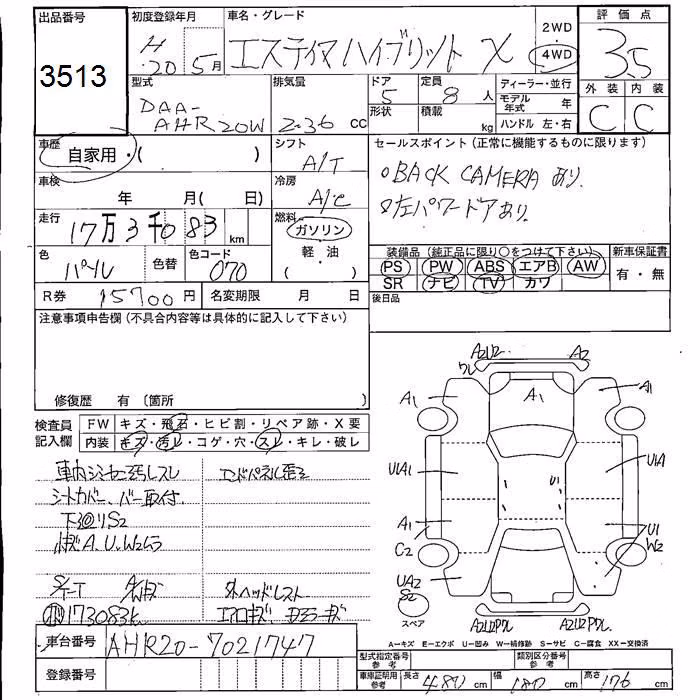 出品番号 初度登録年月 車名・グレード 2WD 評価点
3513 H.20 5月 エスティマ ハイブリット X 4WD 3.5
型式 排気量 ドア 定員 ディーラー・並行 外装 内装
DAA- 5 8人 モデル年式 年 C C
AHR20W 2.36 cc 形状 積載 kg ハンドル 左・右
車歴 自家用・( ) シフト A/T セールスポイント(正常に機能するものに限ります)
車検 年 月( 日) 冷房 A/C ○BACK CAMERA あり.
走行 17万3千083 km 燃料 ガソリン ○左パワードアあり.
色 パール 色替 色コード 070 (軽・油) 装備品(純正品に限り○をつけて下さい) 新車保証書
PS PW ABS エアB AW 有・無
R券 15700円 名変期限 月 日 SR ナビ TV カワ
注意事項申告欄(不具合内容等は具体的に記入して下さい) 後日品
修復歴 有〔箇所 〕
検査員 FW キズ・飛石・ヒビ割・リペア跡・X要
記入欄 内装 キズ・汚レ・コゲ・穴・スレ・キレ・破レ
シートカバー、バー取付
下廻りS2
外ヘッドレスト
173083k
A2U2 A2
ワレ
A1 A1 A1
U1A1 U1A
A1 U1
C2 W2
UA2
S2
スペア A2U2PDL A2U2PDL.
A=キズ E=エクボ U=凹み W=補修跡 S=サビ C=腐食 XX=交換済
車台番号 AHR20-7021747
登録番号
型式指定番号 参考 類別区分番号 参考
車庫証明用 参考 長さ 480 cm 幅 180 cm 高さ 176 cm